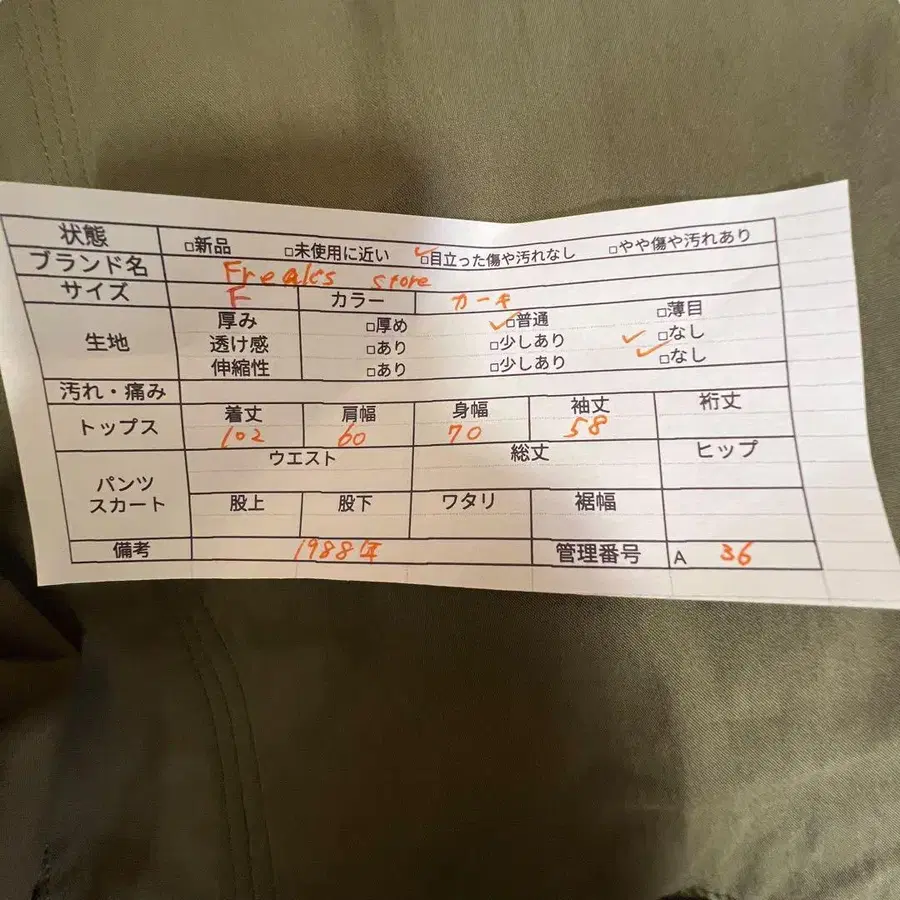 状態 □新品 □未使用に近い ✓□目立った傷や汚れなし □やや傷や汚れあり
ブランド名 Freaks store
サイズ F カラー カーキ
生地 厚み □厚め ✓□普通 □薄目
透け感 □あり □少しあり ✓□なし
伸縮性 □あり □少しあり ✓□なし
汚れ・痛み
トップス 着丈 肩幅 身幅 袖丈 裄丈
102 60 70 58
パンツ スカート ウエスト 総丈 ヒップ
股上 股下 ワタリ 裾幅
備考 1988年 管理番号 A 36